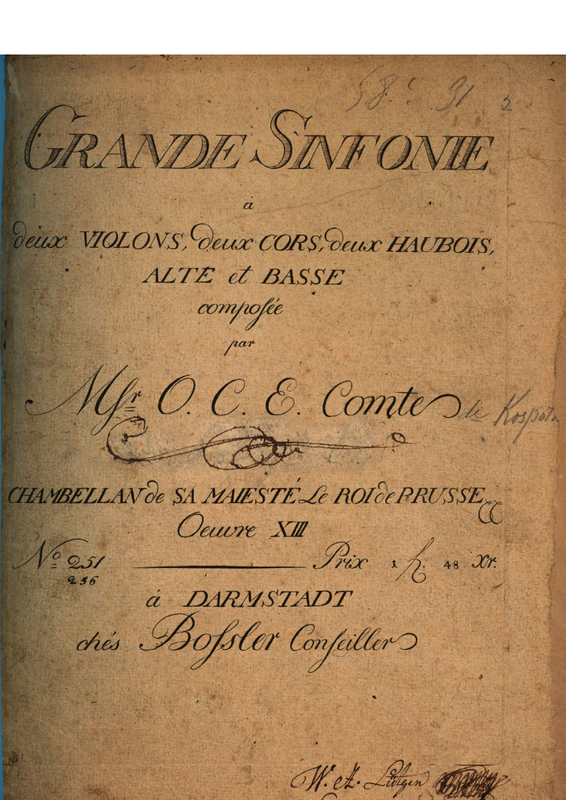 58.c 31 2
GRANDE SINFONIE
à
deux VIOLONS, deux CORS, deux HAUBOIS,
ALTE et BASSE
composée
par
Msr. O. C. E. Comte de Kospoth
CHAMBELLAN de SA MAIESTÉ Le ROI de PRUSSE &
Oeuvre XIII
No. 251 Prix 1 fl. 48 Xr.
256
à DARMSTADT
chés Bossler Conseiller
W. et L. Lütgen